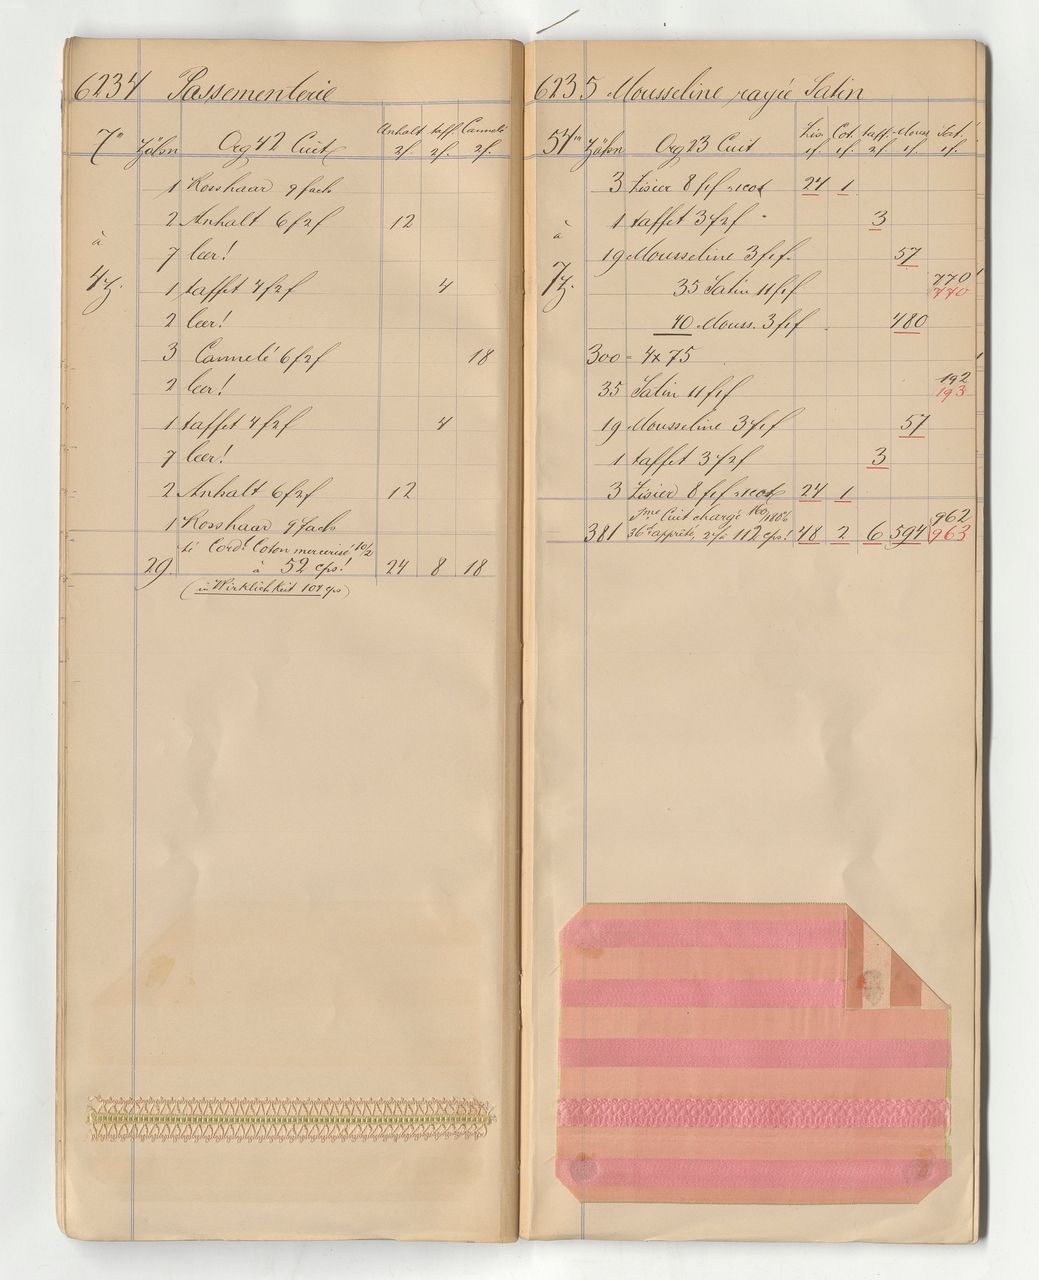 6234 Passementerie
Anhalt taff. Cannelé
7''' Zähn Org 42 Cuit 2f. 2f. 2f.
1 Rosshaar 9 fach
2 Anhalt 6f2f 12
à
7 leer!
4 Z. 1 taffet 4f2f 4
2 leer!
3 Cannelé 6f2f 18
2 leer!
1 taffet 4f2f 4
7 leer!
2 Anhalt 6f2f 12
1 Rosshaar 9 fach
té Cord. Coton mercerisé 10/2
29. à 52 cps! 24 8 18
(in Wirklichkeit 104 cps)
6235 Mousseline rayée Satin
Lis. Cot. taff. Mouss. Sat.
54''' Zähn Org 23 Cuit 1f. 1f. 2f. 1f. 1f.
3 Lisier 8f1f 1cot 24 1
1 taffet 3f2f 3
à
19 Mousseline 3f1f 57
7 Z. 35 Satin 11f1f 770
770
40 Mouss. 3f1f 480
300 = 4x75
35 Satin 11f1f 192
193
19 Mousseline 3f1f 57
1 taffet 3f2f 3
3 Lisier 8f1f 1cot 24 1
Cuit chargé 160/180% 962
381 36 d apprêté, 2f à 112 cps! 48 2 6 594 963